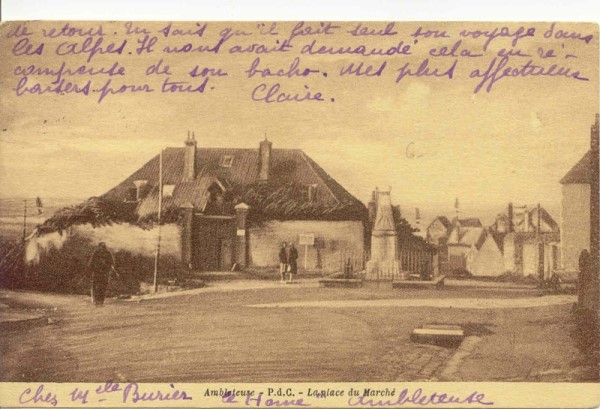 de retour. Tu sais qu'il fait seul son voyage dans
les Alpes. Il nous avait demandé cela en ré-
compense de son bacho. Mes plus affectueux
baisers pour tous. Claire.
Ambleteuse - P.d.C. - La place du Marché
Chez Mlle Burier "le Home" Ambleteuse